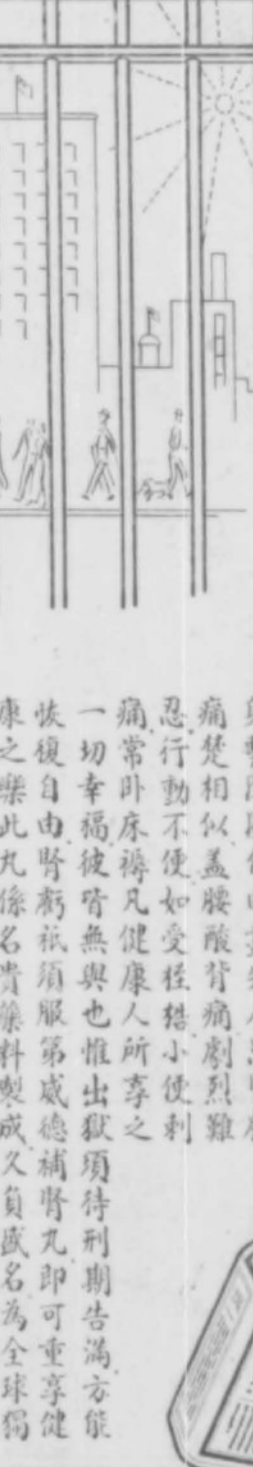 痛楚相似蓋腰酸背痛劇烈難
忍行動不便如受桎梏小便刺
痛常卧床褥凡健康人所享之
一切幸福彼皆無與也惟出獄須待刑期告滿方能
恢復自由腎虧祇須服第威德補腎丸即可重享健
康之樂此丸係名貴藥料製成久負盛名為全球獨